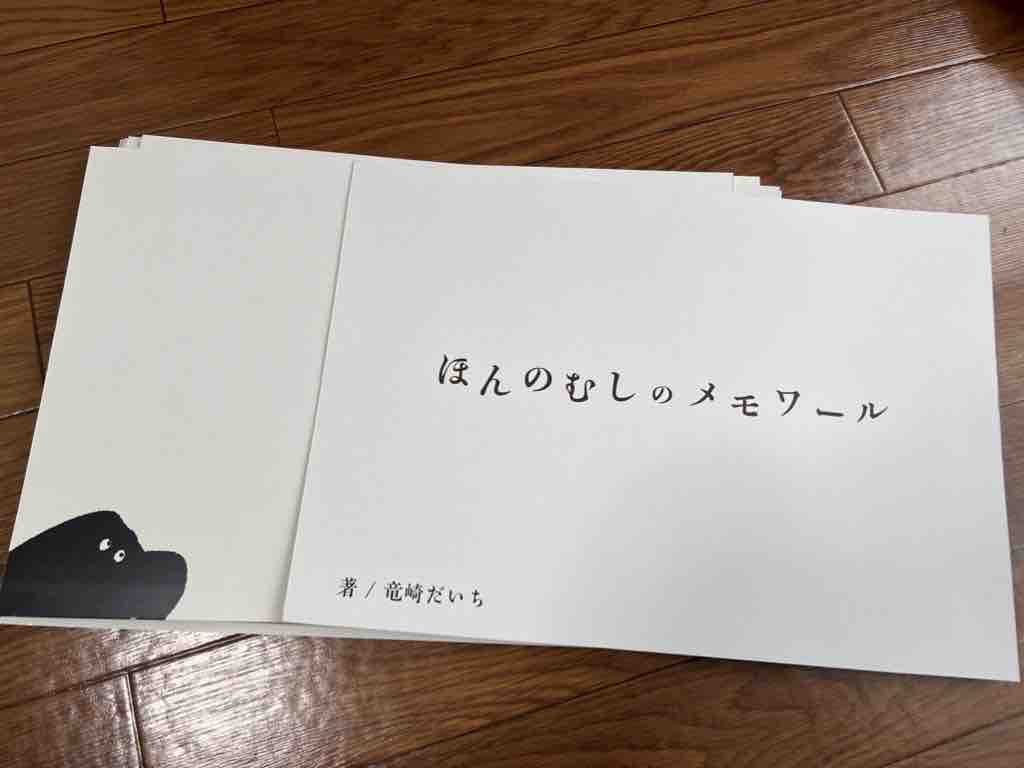 ほんのむしのメモワール
著/竜崎だいち